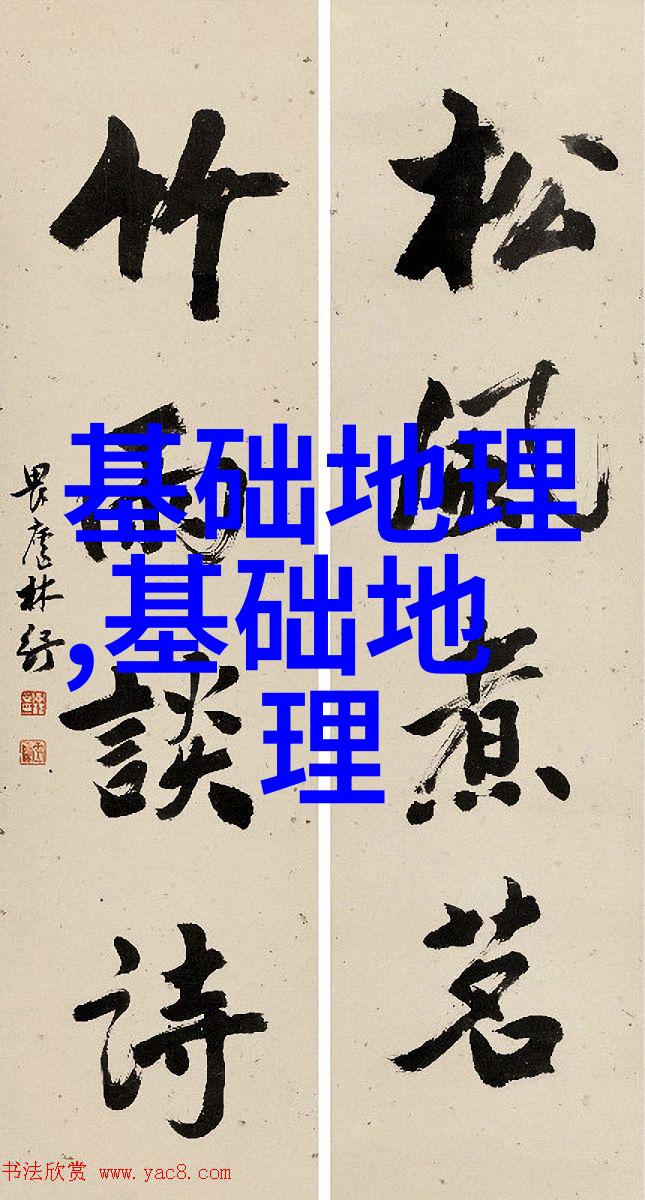 松風煮茗
竹雨談詩
畏廬林紓
基础地理
,基础地
理
书法欣赏 www.yac8.com